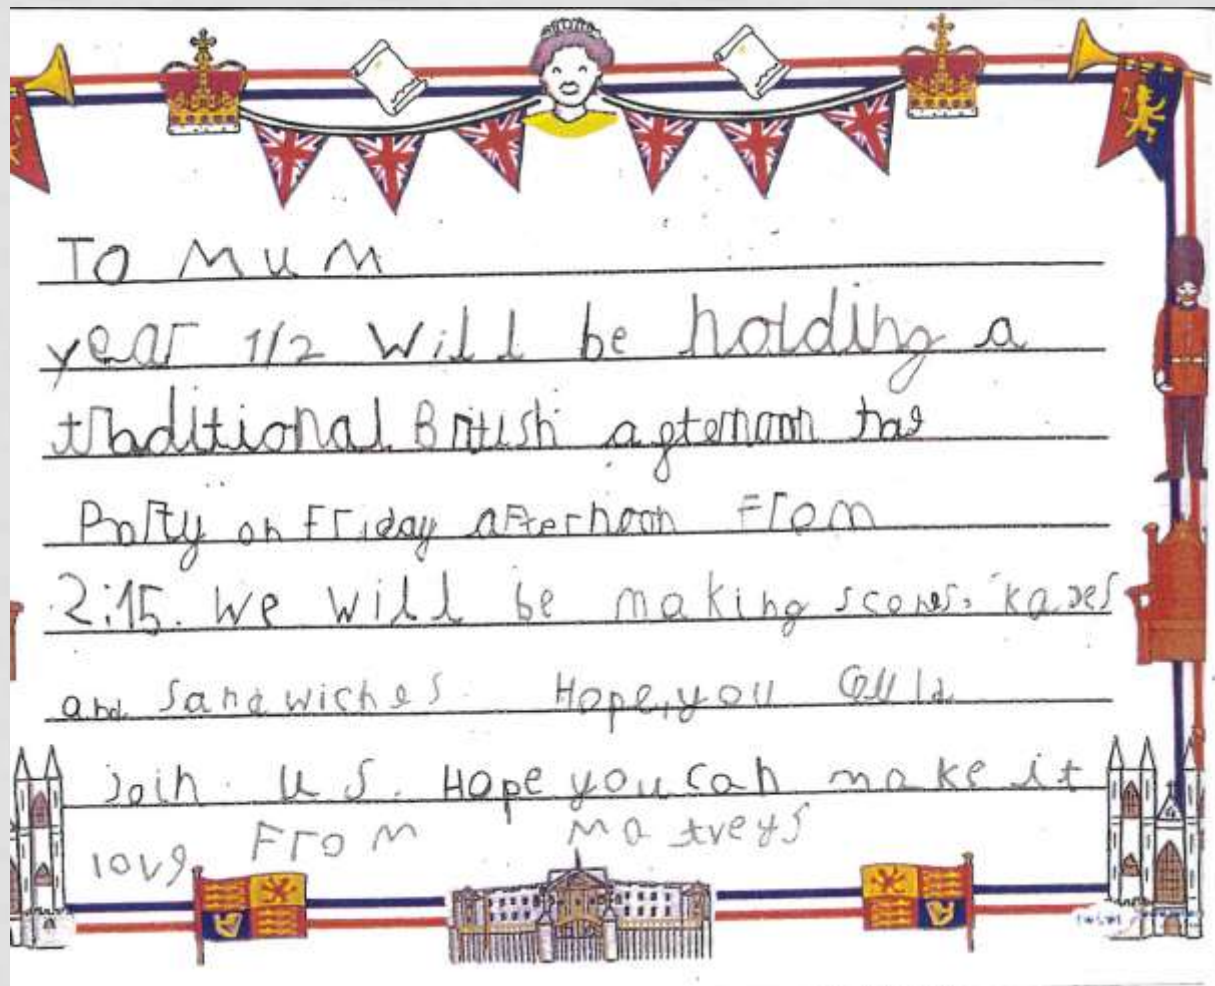 To Mum
year 1/2 will be holding a
traditional British agternoon tae
Party on Friday afternoon From
2:15. We will be making scones, kaxes
and sandwiches. Hope, you Culd
join us. Hope you can make it
love From Matveys